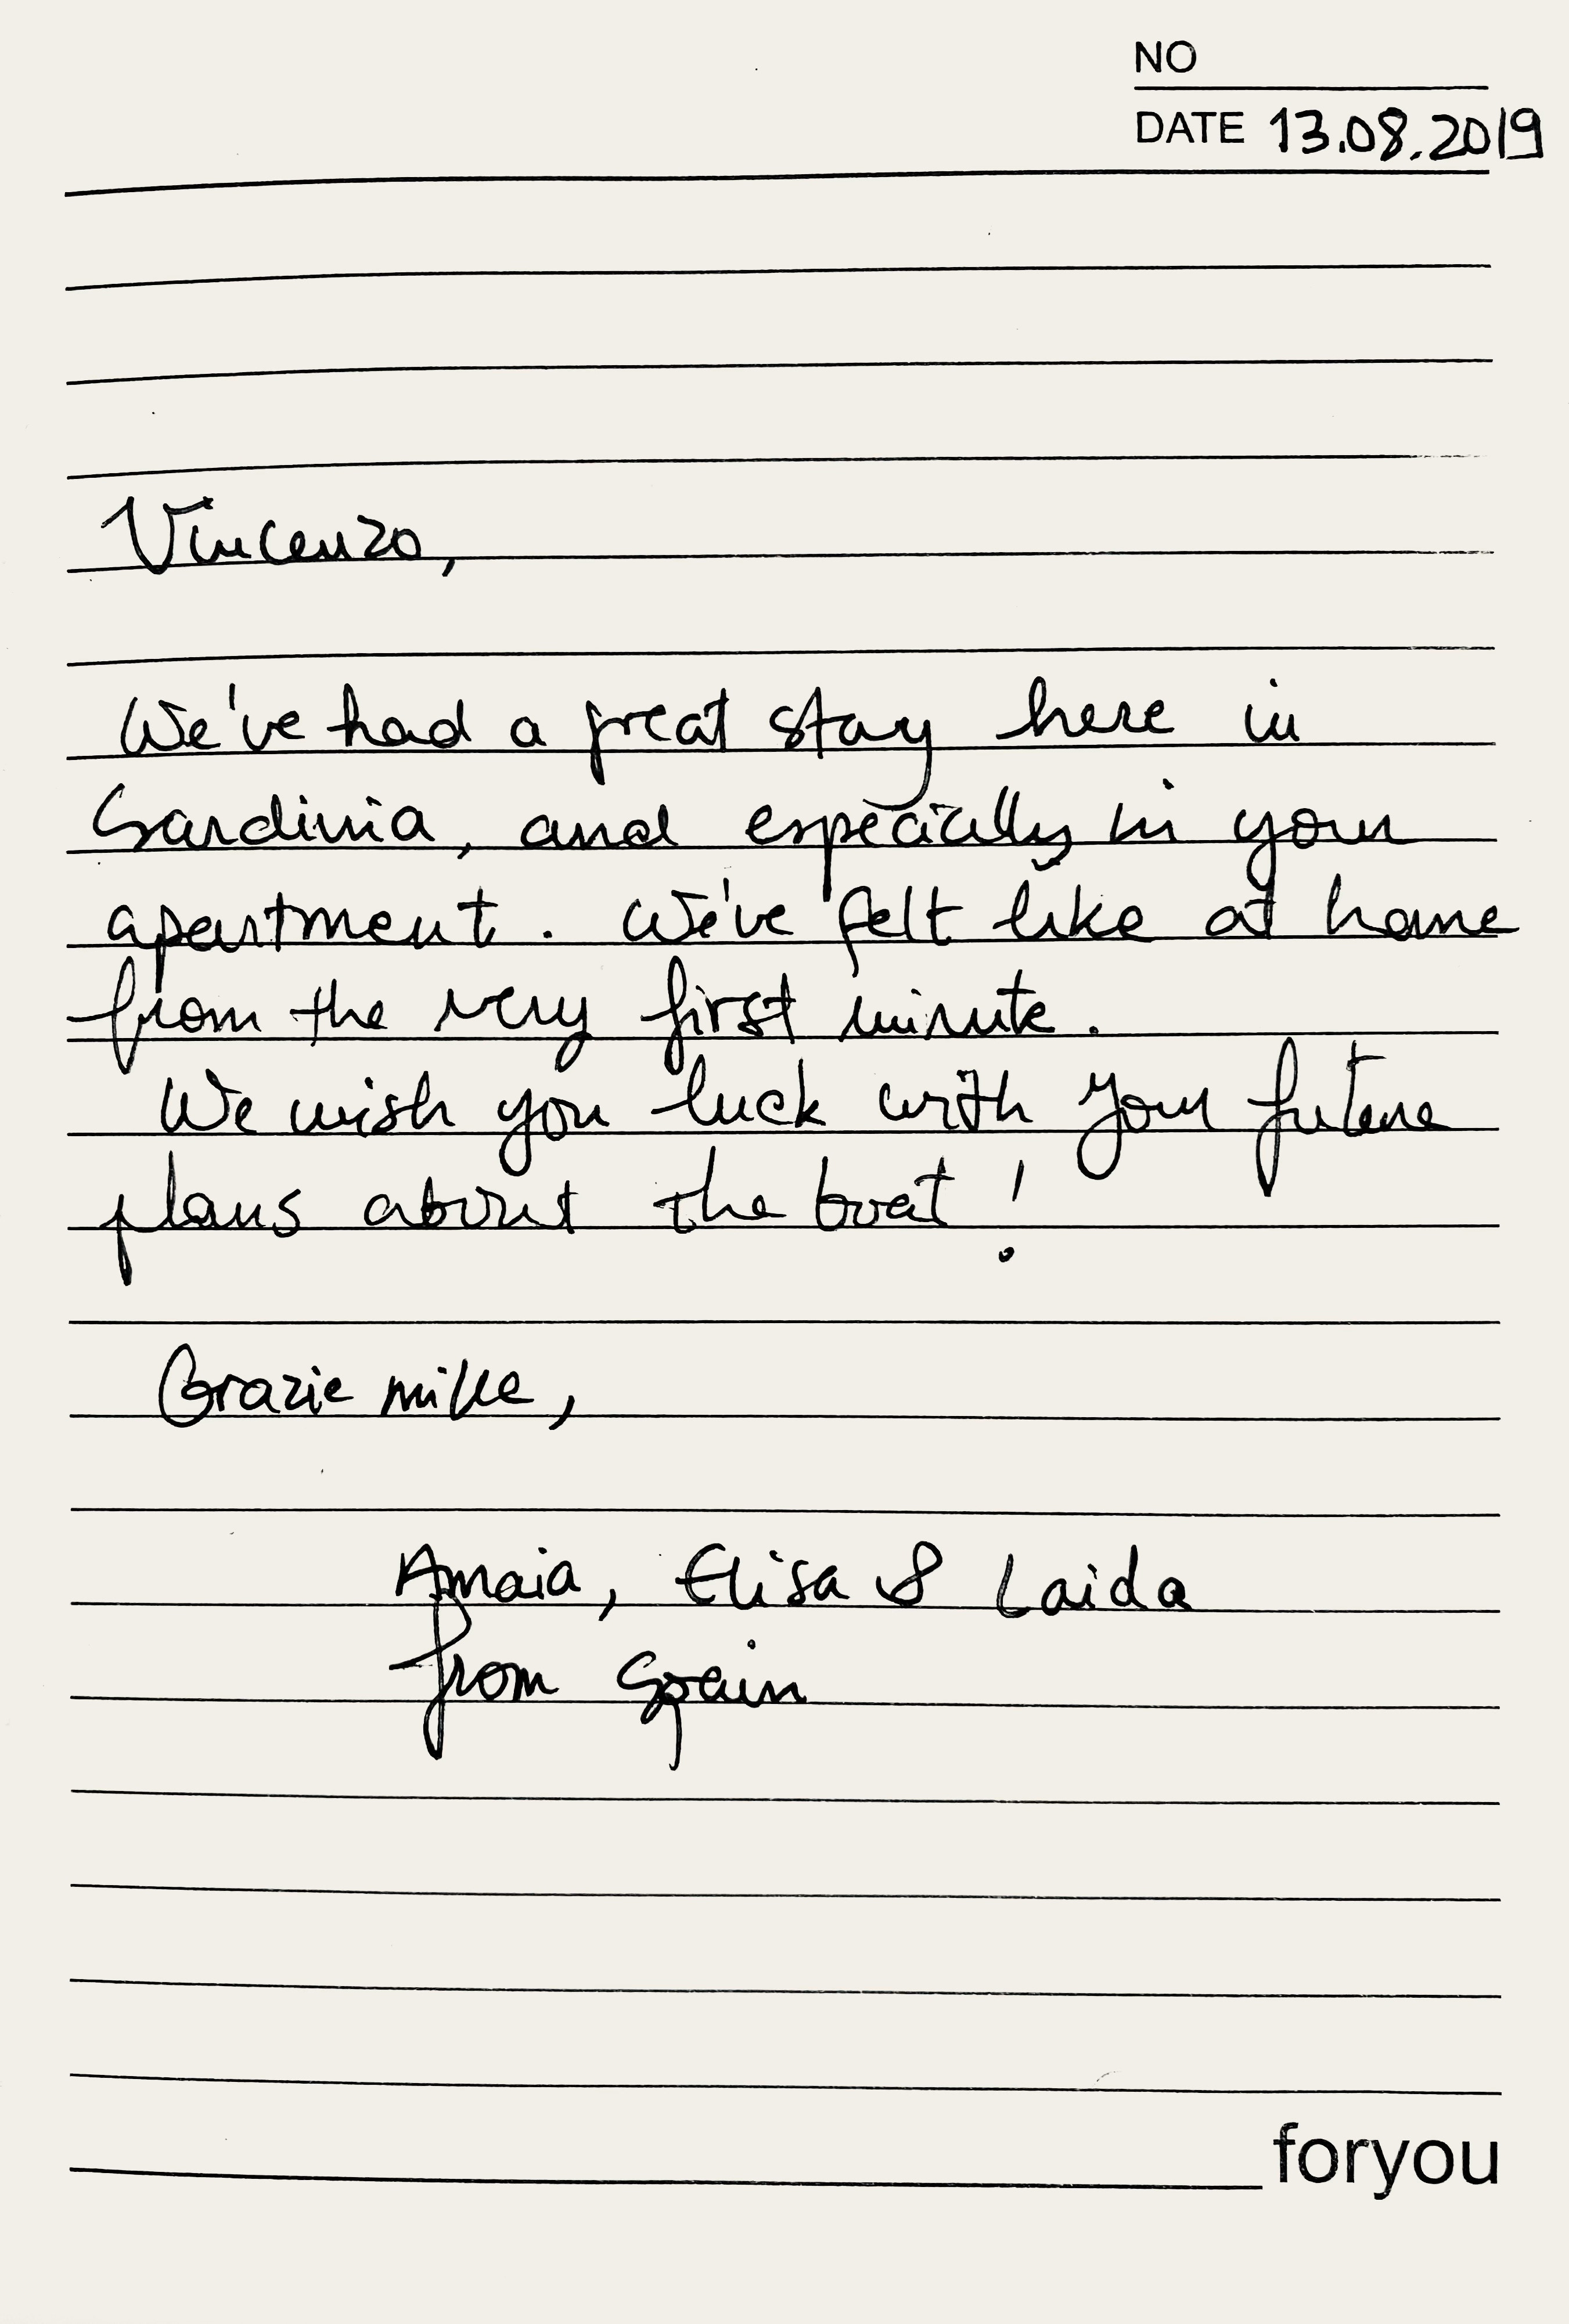 NO
DATE 13.08.2019
Vincenzo,
We've had a great stay here in
Sardinia, and especially in your
apartment. We've felt like at home
from the very first minute.
We wish you luck with your future
plans about the boat!
Grazie mille,
Amaia, Elisa & Laida
from Spain
foryou